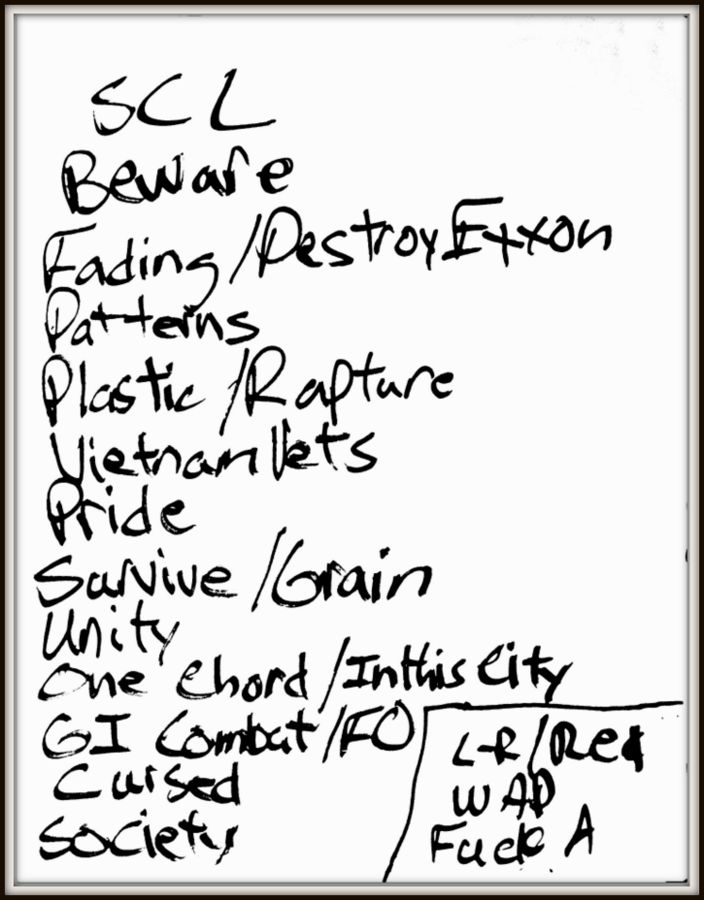 SCL
Beware
Fading/Destroy Exxon
Patterns
Plastic/Rapture
Vietnam Vets
Pride
Survive/Grain
Unity
One Chord/In this City
GI Combat/FO
Cursed
Society
L-R/Red
WAP
Fuck A